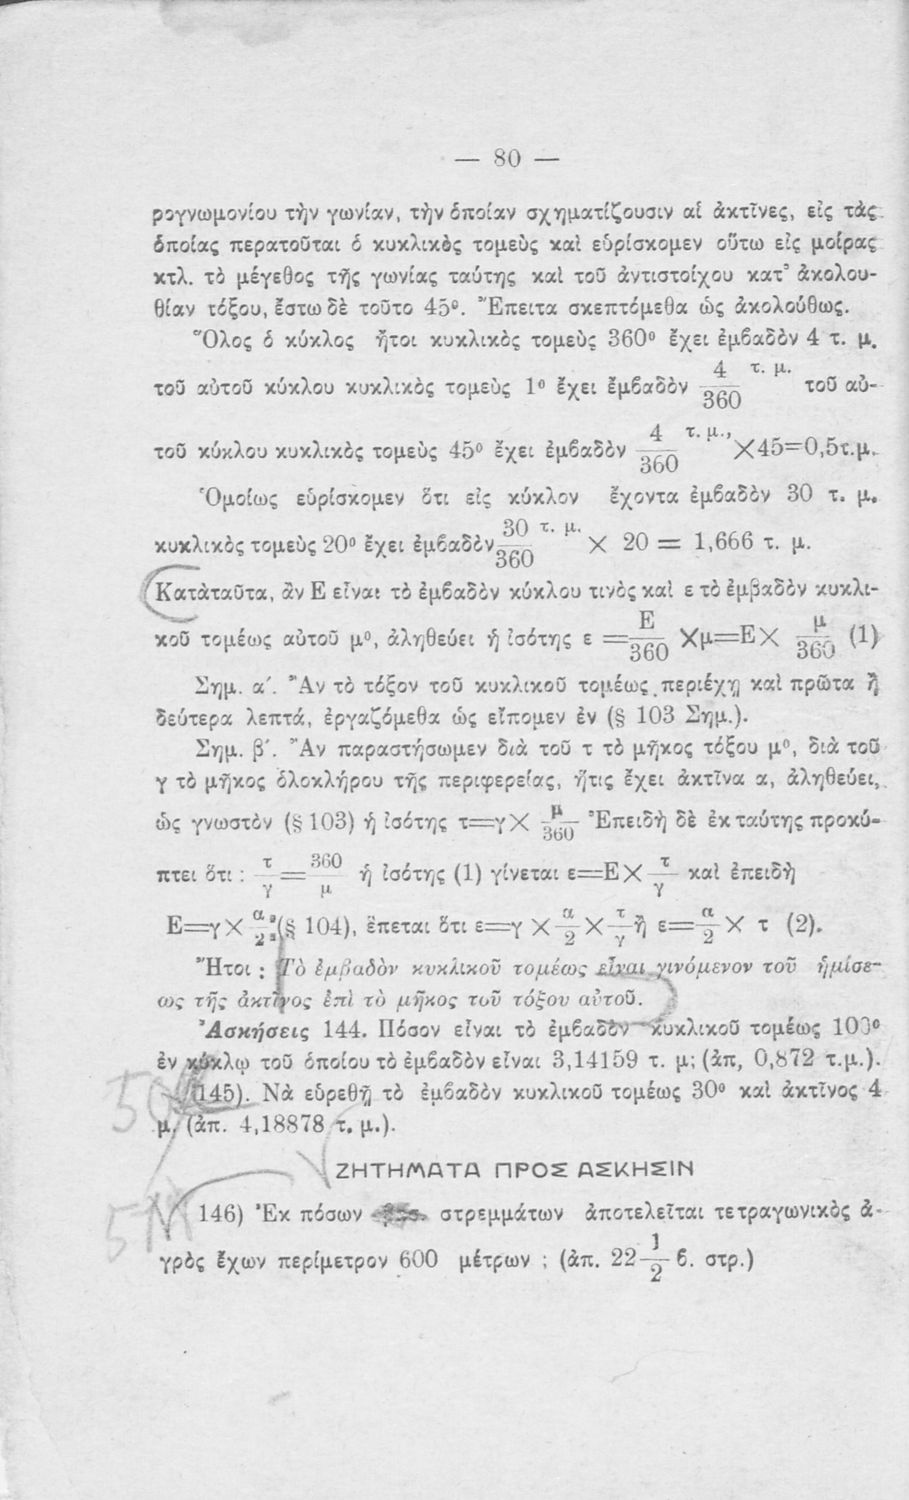 — 80 —
ρογνωμονίου τὴν γωνίαν, τὴν ὁποίαν σχηματίζουσιν αἱ ἀκτῖνες, εἰς τὰς
ὁποίας περατοῦται ὁ κυκλικὸς τομεὺς καὶ εὑρίσκομεν οὕτω εἰς μοίρας
κτλ. τὸ μέγεθος τῆς γωνίας ταύτης καὶ τοῦ ἀντιστοίχου κατ' ἀκολου-
θίαν τόξου, ἔστω δὲ τοῦτο 45⁰. Ἔπειτα σκεπτόμεθα ὡς ἀκολούθως.
Ὅλος ὁ κύκλος ἤτοι κυκλικὸς τομεὺς 360⁰ ἔχει ἐμβαδὸν 4 τ. μ.
τοῦ αὐτοῦ κύκλου κυκλικὸς τομεὺς 1⁰ ἔχει ἐμβαδὸν 4/360 τ. μ. τοῦ αὐ-
τοῦ κύκλου κυκλικὸς τομεὺς 45⁰ ἔχει ἐμβαδὸν 4/360 τ. μ., ×45=0,5τ.μ.
Ὁμοίως εὑρίσκομεν ὅτι εἰς κύκλον ἔχοντα ἐμβαδὸν 30 τ. μ.
κυκλικὸς τομεὺς 20⁰ ἔχει ἐμβαδὸν 30/360 τ. μ. × 20 = 1,666 τ. μ.
Κατὰταῦτα, ἂν Ε εἶναι τὸ ἐμβαδὸν κύκλου τινὸς καὶ ε τὸ ἐμβαδὸν κυκλι-
κοῦ τομέως αὐτοῦ μ⁰, ἀληθεύει ἡ ἰσότης ε = Ε/360 ×μ=Ε× μ/360 (1)
Σημ. α΄. Ἂν τὸ τόξον τοῦ κυκλικοῦ τομέως περιέχῃ καὶ πρῶτα ἢ
δεύτερα λεπτά, ἐργαζόμεθα ὡς εἴπομεν ἐν (§ 103 Σημ.).
Σημ. β΄. Ἂν παραστήσωμεν διὰ τοῦ τ τὸ μῆκος τόξου μ⁰, διὰ τοῦ
γ τὸ μῆκος ὁλοκλήρου τῆς περιφερείας, ἥτις ἔχει ἀκτῖνα α, ἀληθεύει,
ὡς γνωστὸν (§ 103) ἡ ἰσότης τ=γ× μ/360 Ἐπειδὴ δὲ ἐκ ταύτης προκύ-
πτει ὅτι : τ/γ = 360/μ ἡ ἰσότης (1) γίνεται ε=Ε× τ/γ καὶ ἐπειδὴ
Ε=γ× α/2 (§ 104), ἕπεται ὅτι ε=γ × α/2 × τ/γ ἢ ε= α/2 × τ (2).
Ἤτοι : Τὸ ἐμβαδὸν κυκλικοῦ τομέως εἶναι γινόμενον τοῦ ἡμίσε-
ως τῆς ἀκτῖνος ἐπὶ τὸ μῆκος τοῦ τόξου αὐτοῦ.
Ἀσκήσεις 144. Πόσον εἶναι τὸ ἐμβαδὸν κυκλικοῦ τομέως 100⁰
ἐν κύκλῳ τοῦ ὁποίου τὸ ἐμβαδὸν εἶναι 3,14159 τ. μ; (ἀπ, 0,872 τ.μ.).
145). Νὰ εὑρεθῇ τὸ ἐμβαδὸν κυκλικοῦ τομέως 30⁰ καὶ ἀκτῖνος 4
μ. (ἀπ. 4,18878 τ. μ.).
ΖΗΤΗΜΑΤΑ ΠΡΟΣ ΑΣΚΗΣΙΝ
146) Ἐκ πόσων στρεμμάτων ἀποτελεῖται τετραγωνικὸς ἀ-
γρὸς ἔχων περίμετρον 600 μέτρων ; (ἀπ. 22 1/2 β. στρ.)